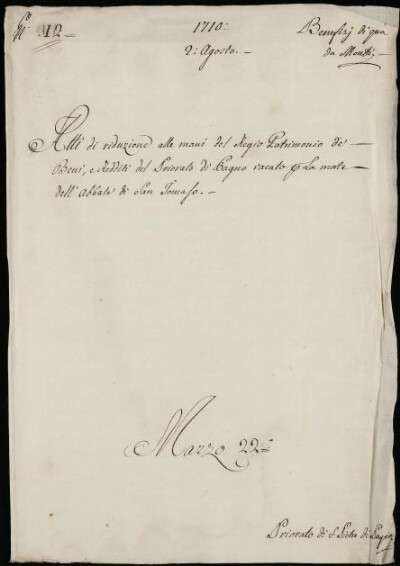 12
1710:
2: Agosto. -
Benefizj di qua
da Monti; -
Atti di riduzione alle mani del Regio Patrimonio de' -
Beni, e Redditi del Priorato di Pagno vacato p la morte
dell'Abbate di San Tomaso. -
Marzo 22°
Priorato di S. Pietro di Pagno